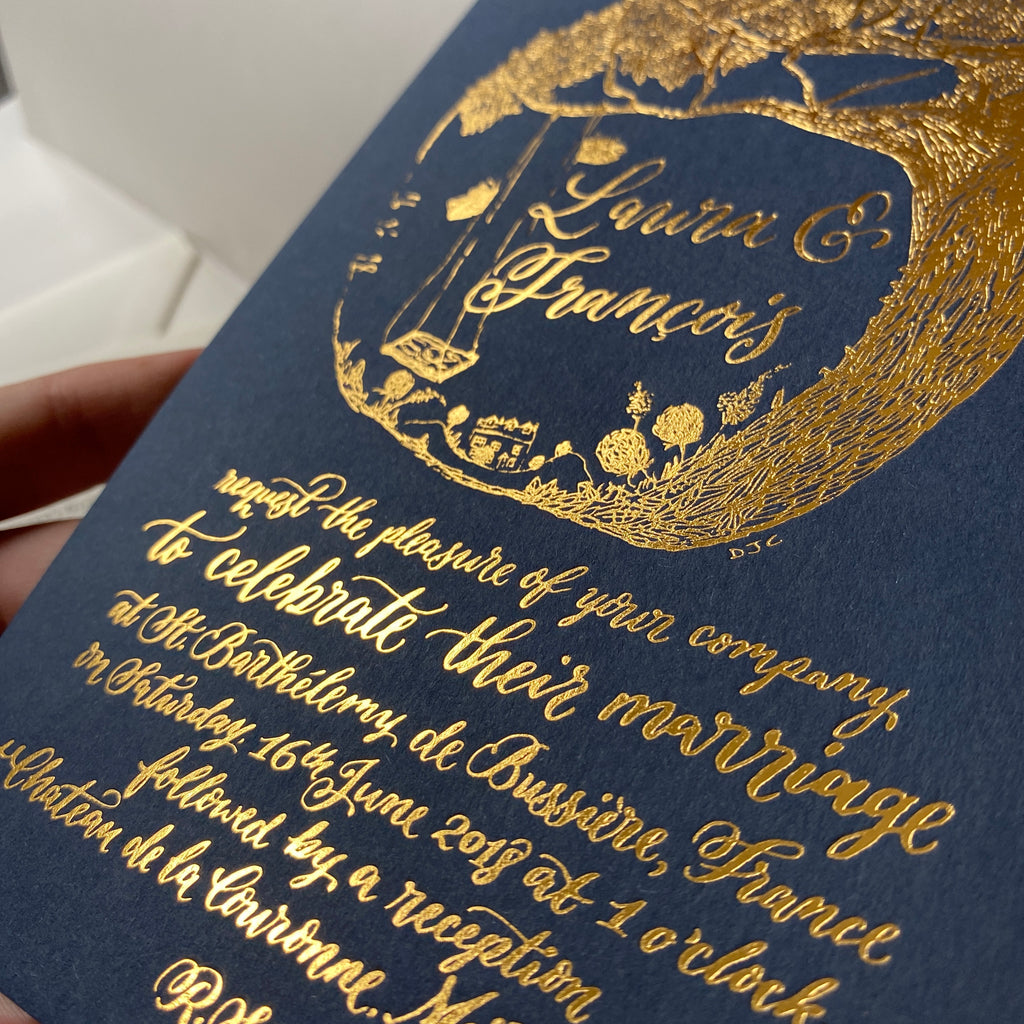 Laura &
François
DJC
request the pleasure of your company
to celebrate their marriage
at St. Barthélemy de Bussière, France
on Saturday 16th June 2018 at 1 o'clock
followed by a reception
Chateau de la Couronne,